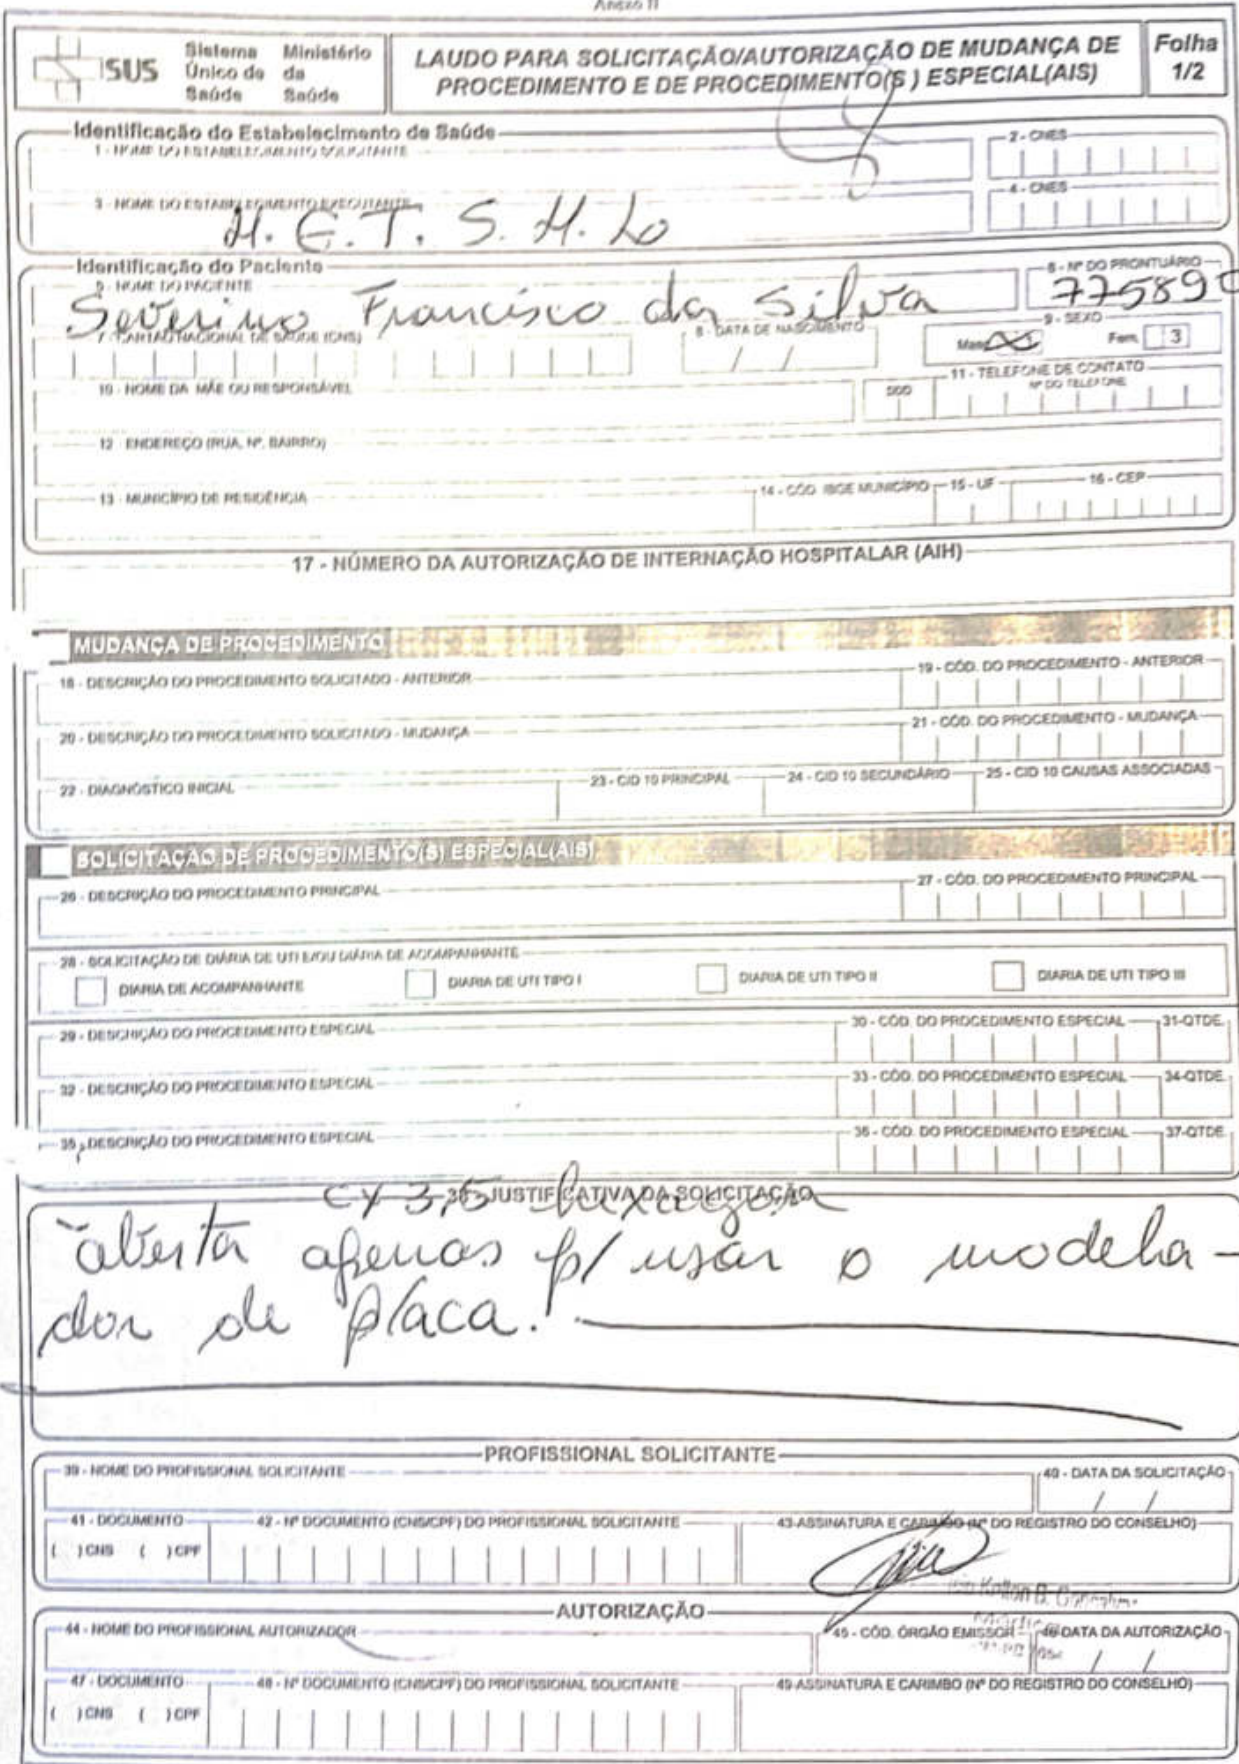 Anexo II
SUS
Sistema Único de Saúde
Ministério da Saúde
LAUDO PARA SOLICITAÇÃO/AUTORIZAÇÃO DE MUDANÇA DE
PROCEDIMENTO E DE PROCEDIMENTO(S ) ESPECIAL(AIS)
Folha
1/2
Identificação do Estabelecimento de Saúde
1 - NOME DO ESTABELECIMENTO SOLICITANTE
2 - CNES
3 - NOME DO ESTABELECIMENTO EXECUTANTE
4 - CNES
H. E. T. S. H. L
Identificação do Paciente
5 - NOME DO PACIENTE
6 - Nº DO PRONTUÁRIO
Severino Francisco da Silva
77589
7 - CARTÃO NACIONAL DE SAÚDE (CNS)
8 - DATA DE NASCIMENTO
/ /
9 - SEXO
Masc.
Fem. 3
10 - NOME DA MÃE OU RESPONSÁVEL
11 - TELEFONE DE CONTATO
DDD
Nº DO TELEFONE
12 - ENDEREÇO (RUA, Nº, BAIRRO)
13 - MUNICÍPIO DE RESIDÊNCIA
14 - CÓD. IBGE MUNICÍPIO
15 - UF
16 - CEP
17 - NÚMERO DA AUTORIZAÇÃO DE INTERNAÇÃO HOSPITALAR (AIH)
MUDANÇA DE PROCEDIMENTO
18 - DESCRIÇÃO DO PROCEDIMENTO SOLICITADO - ANTERIOR
19 - CÓD. DO PROCEDIMENTO - ANTERIOR
20 - DESCRIÇÃO DO PROCEDIMENTO SOLICITADO - MUDANÇA
21 - CÓD. DO PROCEDIMENTO - MUDANÇA
22 - DIAGNÓSTICO INICIAL
23 - CID 10 PRINCIPAL
24 - CID 10 SECUNDÁRIO
25 - CID 10 CAUSAS ASSOCIADAS
SOLICITAÇÃO DE PROCEDIMENTO(S) ESPECIAL(AIS)
26 - DESCRIÇÃO DO PROCEDIMENTO PRINCIPAL
27 - CÓD. DO PROCEDIMENTO PRINCIPAL
28 - SOLICITAÇÃO DE DIÁRIA DE UTI E/OU DIÁRIA DE ACOMPANHANTE
DIARIA DE ACOMPANHANTE
DIARIA DE UTI TIPO I
DIARIA DE UTI TIPO II
DIARIA DE UTI TIPO III
29 - DESCRIÇÃO DO PROCEDIMENTO ESPECIAL
30 - CÓD. DO PROCEDIMENTO ESPECIAL
31-QTDE
32 - DESCRIÇÃO DO PROCEDIMENTO ESPECIAL
33 - CÓD. DO PROCEDIMENTO ESPECIAL
34-QTDE
35 - DESCRIÇÃO DO PROCEDIMENTO ESPECIAL
36 - CÓD. DO PROCEDIMENTO ESPECIAL
37-QTDE
38 - JUSTIFICATIVA DA SOLICITAÇÃO
3,5
aberta apenas p/ usar o modela-
dor de placa.
PROFISSIONAL SOLICITANTE
39 - NOME DO PROFISSIONAL SOLICITANTE
40 - DATA DA SOLICITAÇÃO
/ /
41 - DOCUMENTO
( ) CNS ( ) CPF
42 - Nº DOCUMENTO (CNS/CPF) DO PROFISSIONAL SOLICITANTE
43-ASSINATURA E CARIMBO (Nº DO REGISTRO DO CONSELHO)
AUTORIZAÇÃO
44 - NOME DO PROFISSIONAL AUTORIZADOR
45 - CÓD. ÓRGÃO EMISSOR
46-DATA DA AUTORIZAÇÃO
/ /
47 - DOCUMENTO
( ) CNS ( ) CPF
48 - Nº DOCUMENTO (CNS/CPF) DO PROFISSIONAL SOLICITANTE
49-ASSINATURA E CARIMBO (Nº DO REGISTRO DO CONSELHO)